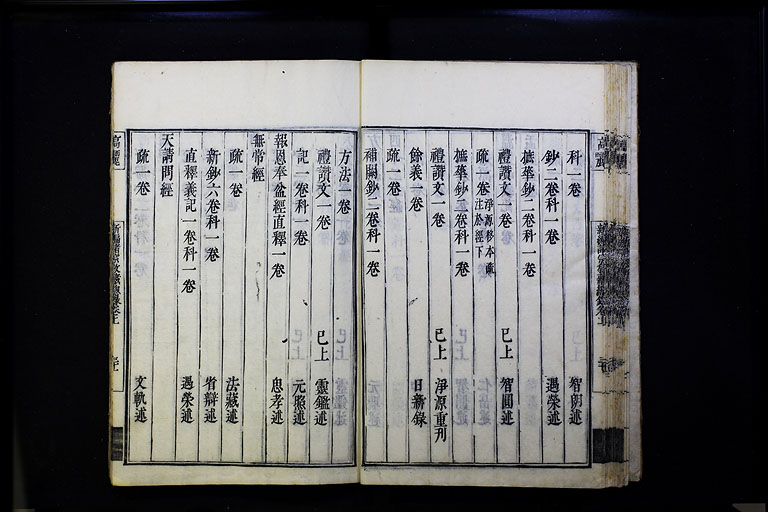 科一卷　智朗述
鈔二卷科一卷　遇榮述
摭華鈔二卷科一卷
禮讚文一卷　已上　智圓述
疏一卷淨源移本疏注於經下
摭華鈔三卷科一卷
禮讚文一卷　已上　淨源重刊
餘義一卷　日新錄
疏一卷
補闕鈔二卷科一卷
方法一卷
禮讚文一卷　已上　靈鑑述
記一卷科一卷　元照述
報恩奉盆經直釋一卷　思孝述
無常經
疏一卷　法藏述
新鈔六卷科一卷　省辯述
直釋義記一卷科一卷　遇榮述
天請問經
疏一卷　文軌述
高麗